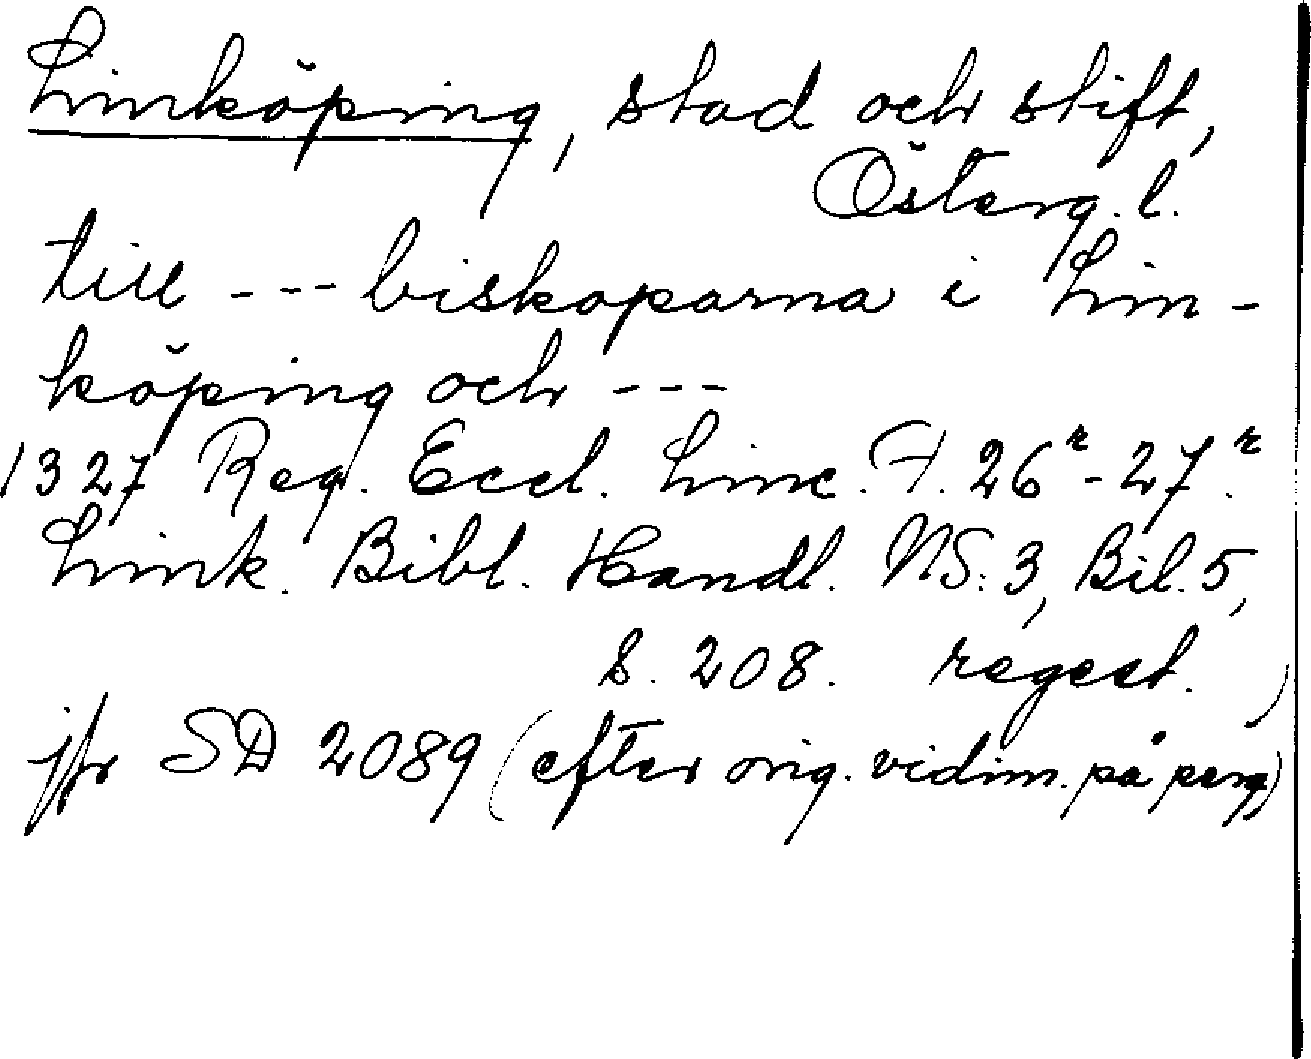 Linköping, stad och stift,
Österg. l.
till --- biskoparna i Lin-
köping och ---
1327 Reg. Eccl. Linc. A. 26r-27r.
Link. Bibl. Handl. NS: 3, Bil. 5,
s. 208. regest.
jfr SD 2089 (efter orig. vidim. på perg)